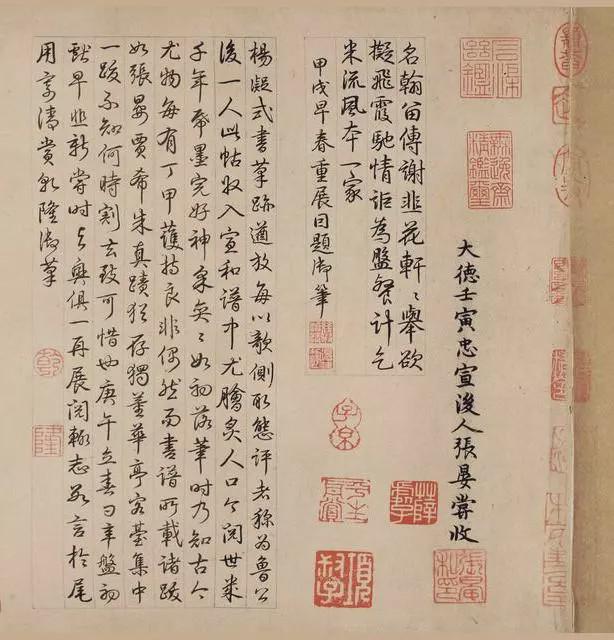 大德壬寅忠宣後人張晏嘗收
無逸齋精鑑璽
名翰留傳謝韭花軒〻舉欲
擬飛霞馳情詎為盤餐計乞
米流風本一家
甲戌早春重展因題御筆
子京
項叔子
楊凝式書筆跡遒放每以欹側取態評者稱為魯公
後一人此帖收入宣和譜中尤膾炙人口今閱世幾
千年帋墨完好神采奕〻如初落筆時乃知古今
尤物每有丁甲護持良非偶然而書譜所載諸跋
如張晏賈希朱真蹟猶存獨董華亭容臺集中
一跋不知何時割去致可惜也庚午立春日辛盤初
獻早韭新嘗時與興俱一再展閱輒志數言於尾
用寄清賞乾隆御筆
乾
隆